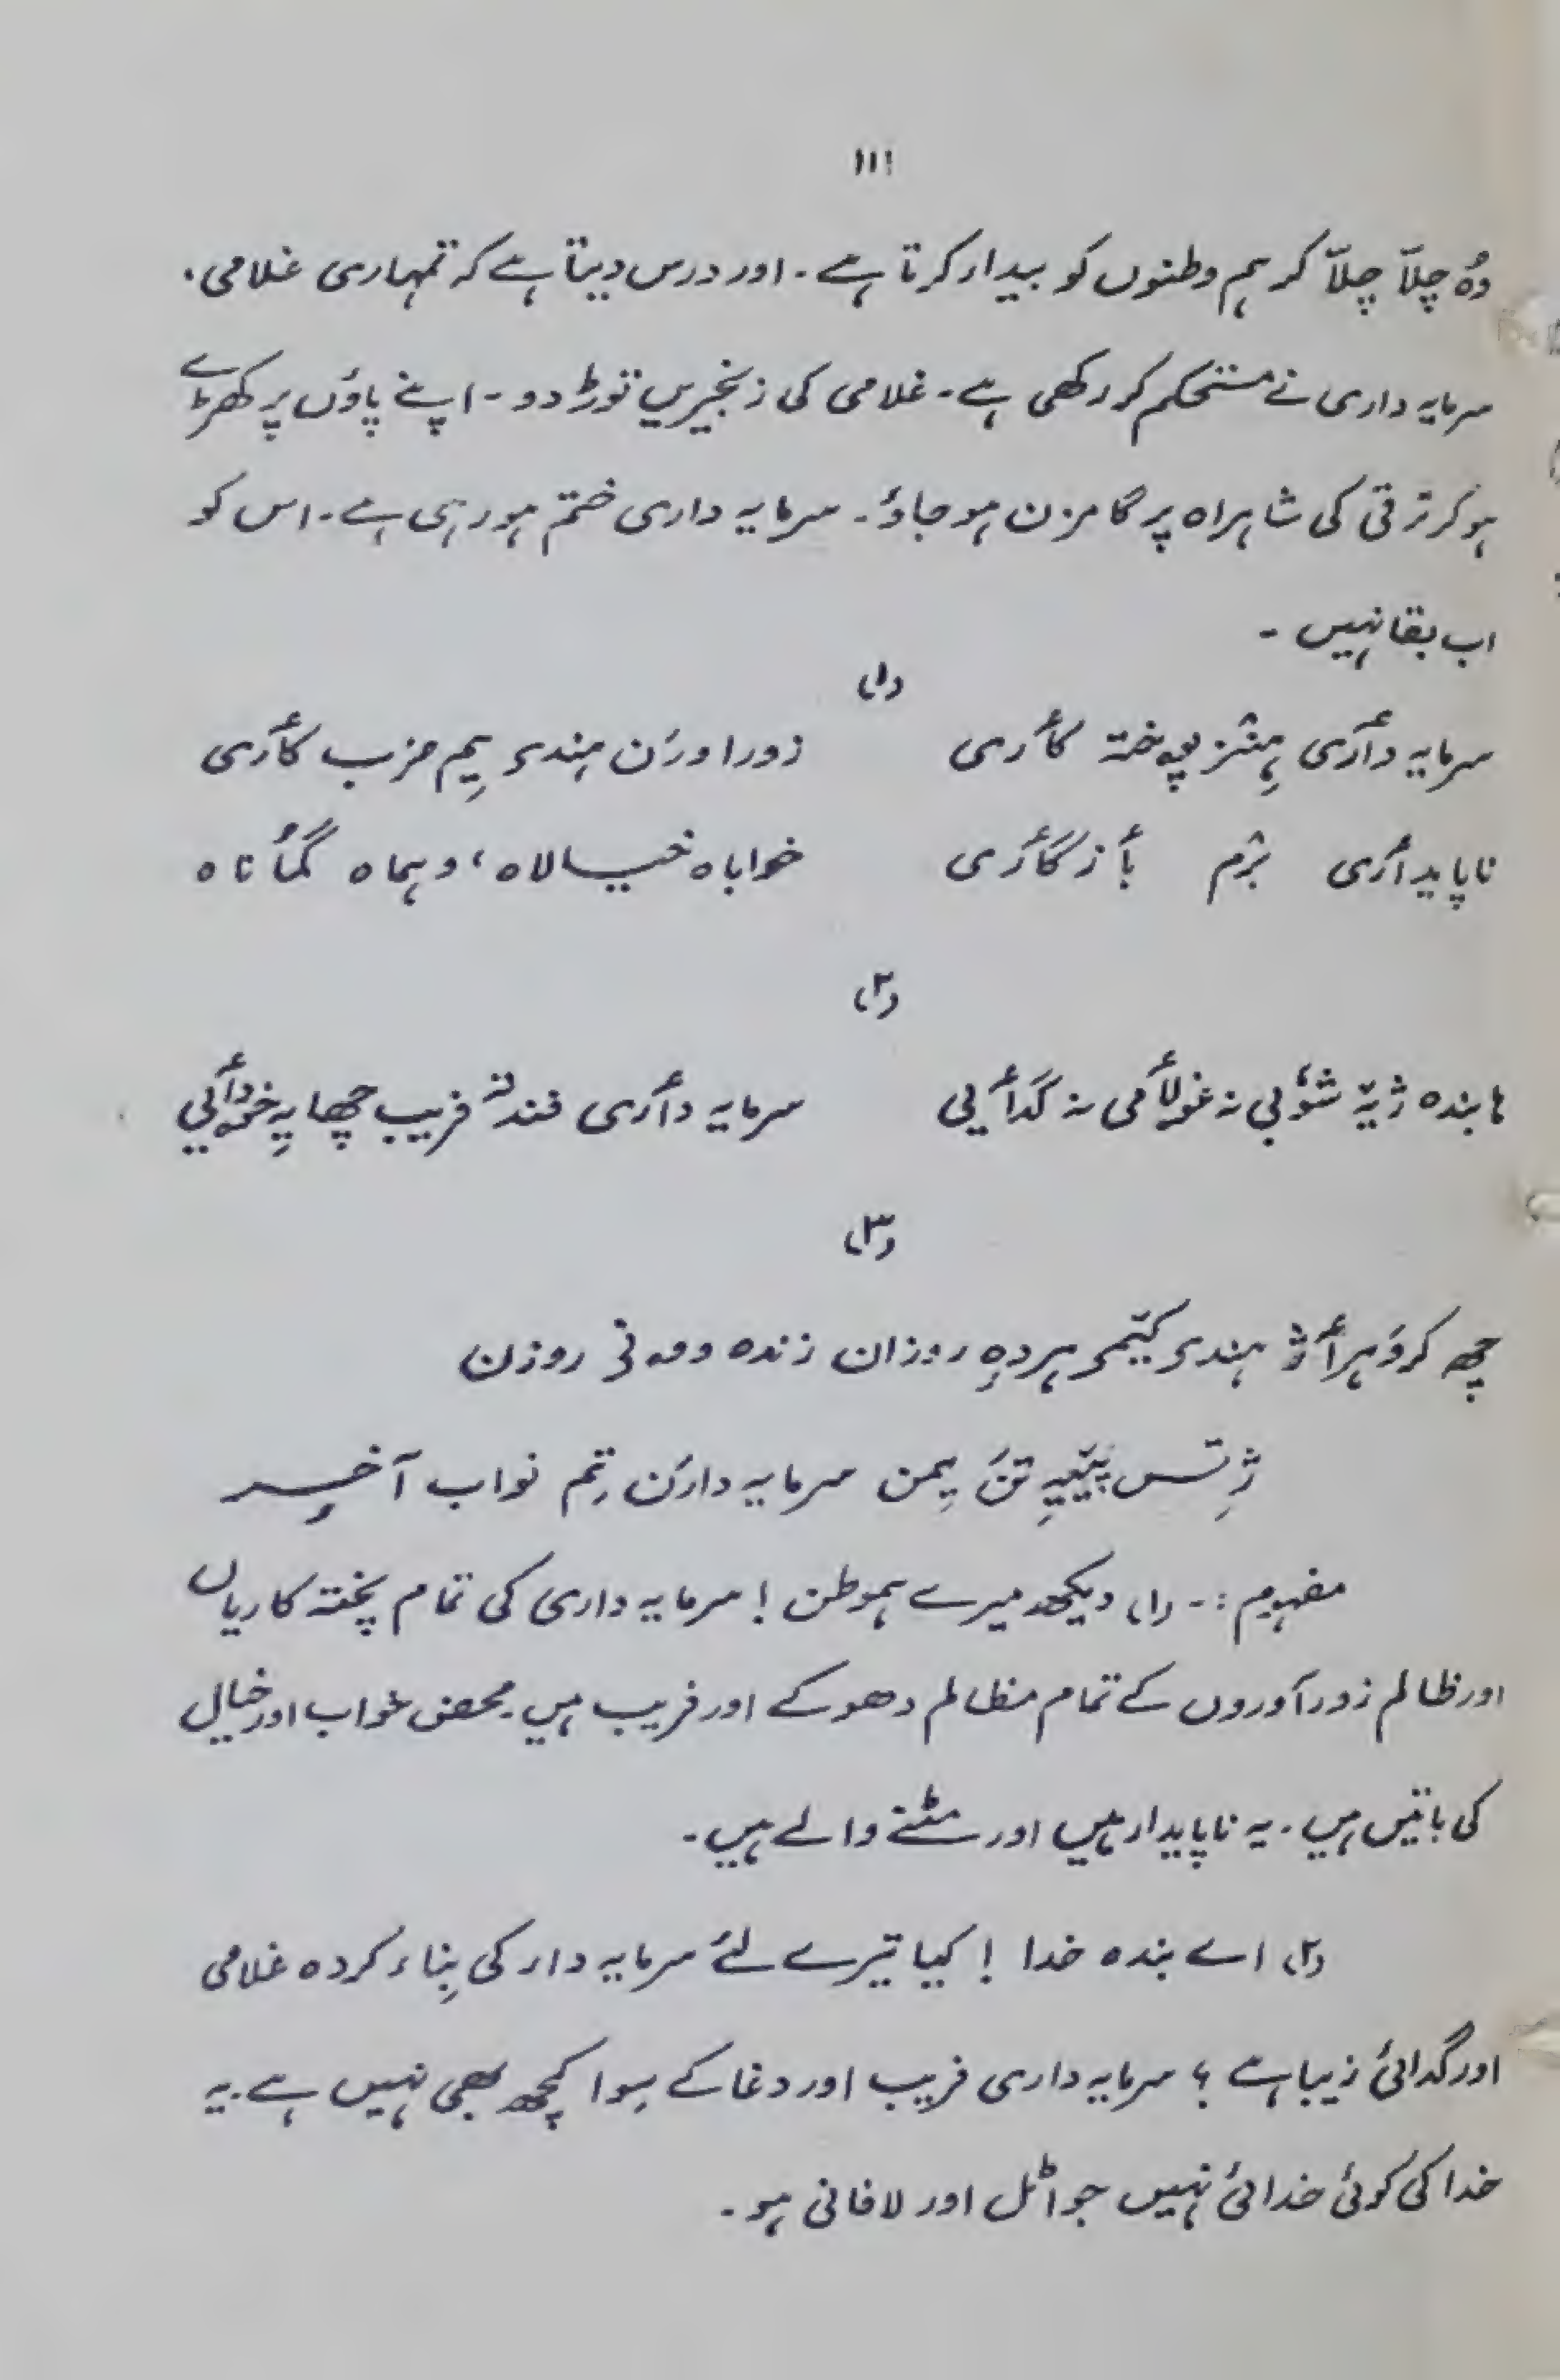 ۱۱۱
وُہ چلاّ چلاّ کر ہم وطنوں کو بیدار کرتا ہے۔ اور درس دیتا ہے کہ تمہاری غلامی،
سرمایہ داری نے مستحکم کر رکھی ہے۔ غلامی کی زنجیریں توڑ دو۔ اپنے پاوُں پر کھڑے
ہو کر ترقی کی شاہراہ پر گامزن ہو جاوُ۔ سرمایہ داری ختم ہو رہی ہے۔ اس کو
اب بقا نہیں ۔
(۱)
سرمایہ دأری ہِنٛز پوختہ کأری زورا ورَن ہِندی یِم حرب کأری
ناپایدأری برٛم بأزی گأری خواباہ خیالاہ، وہماہ گمُاناہ
(۲)
ہا بندہ ژیہٚ شوٗبی نہ غولأمی نہ گدأیی سرمایہ دأری فند تہٕ فریب چھا یہِ خودأیی
(۳)
چھِ کرٛہرأژ ہندی کیٚمی ہردہٕ روزان زندہ وومہٕ نی روزن
ژٕ تس پیٚیہِ تَن یِمن سرمایہ دارَن تِم نواب آخِر
مفہوم :۔ (۱) دیکھ میرے ہموطن ! سرمایہ داری کی تمام پختہ کاریاں
اور ظالم زورآوروں کے تمام مظالم دھوکے اور فریب ہیں۔ محض خواب اور خیال
کی باتیں ہیں۔ یہ ناپایدار ہیں اور مٹنے والے ہیں۔
(۲) اے بندہ خدا ! کیا تیرے لئے سرمایہ دار کی بِناء کردہ غلامی
اور گدائی زیبا ہے ؟ سرمایہ داری فریب اور دغا کے سِوا کچھ بھی نہیں ہے۔ یہ
خدا کی کوئی خدائی نہیں جو اٹل اور لافانی ہو۔